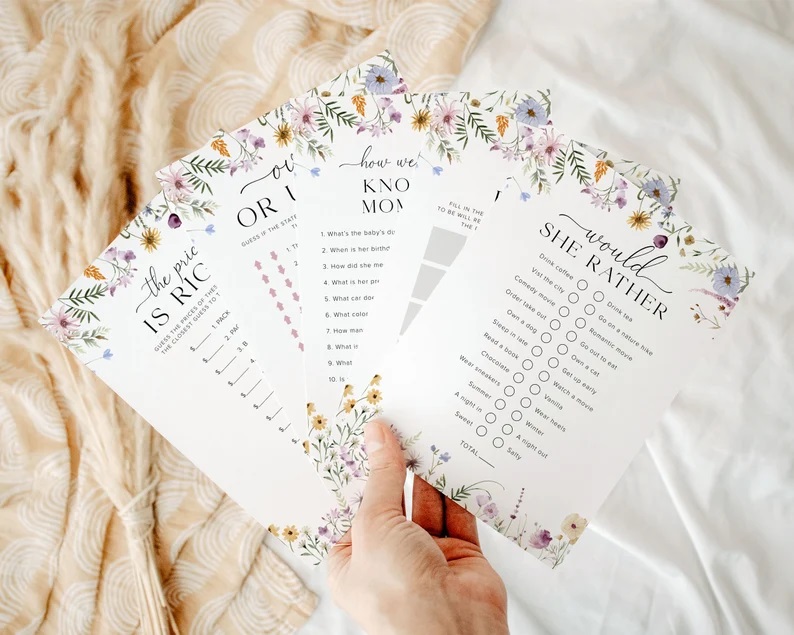 the pric
IS RIC
GUESS THE PRICES OF THES
THE CLOSEST GUESS TO T
$___ 1. PACK
$___ 2. PA
$___ 3. B
$___ 4.
$___
$___
$___
OR
GUESS IF THE STATE
how we
KNO
MOM
1. What's the baby's d
2. When is her birth
3. How did she me
4. What is her pr
5. What car do
6. What color
7. How man
8. What i
9. What
10. Is
FILL IN THE
TO BE WILL RE
THE
would
SHE RATHER
Drink coffee Drink tea
Vist the city Go on a nature hike
Comedy movie Romantic movie
Order take out Go out to eat
Own a dog Own a cat
Sleep in late Get up early
Read a book Watch a movie
Chocolate Vanilla
Wear sneakers Wear heels
Summer Winter
A night in A night out
Sweet Salty
TOTAL___